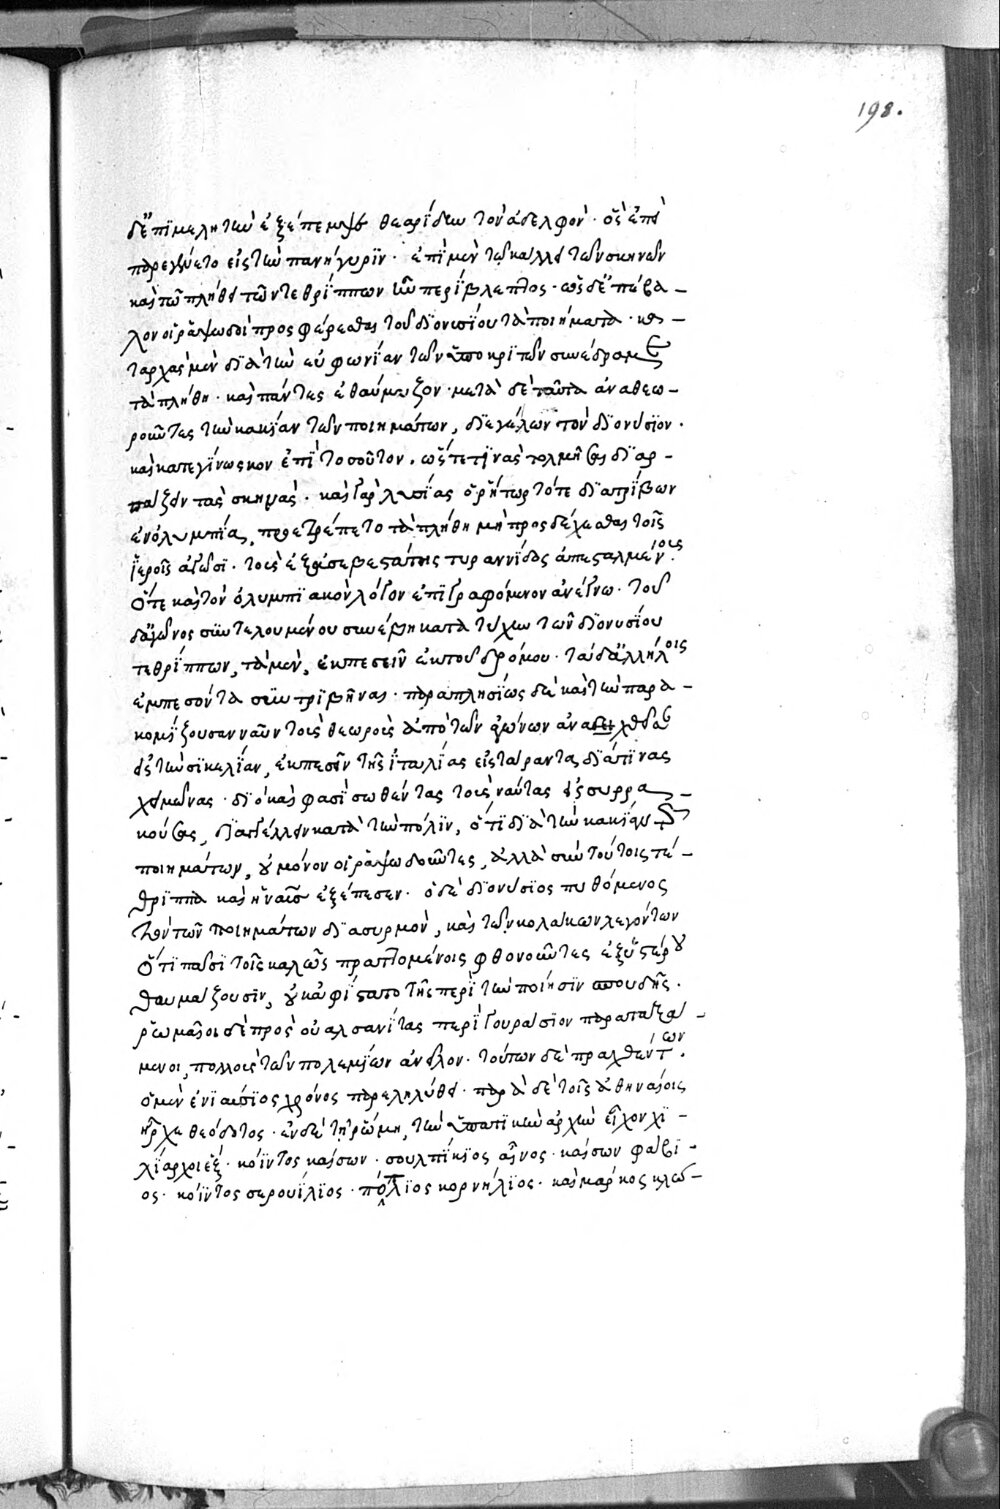 198.
δ' ἐπιμελητὴν ἐξέπεμψε θεαρίδην τὸν ἀδελφόν· ὃς ἐπεὶ
παρεγένετο εἰς τὴν πανήγυριν· ἐπὶ μὲν τῷ κάλλει τῶν σκηνῶν
καὶ τῷ πλήθει τῶν τεθρίππων ἦν περίβλεπτος· ὡς δ' ἐπέβα-
λον οἱ ῥαψωδοὶ προσφέρεσθαι τοῦ διονυσίου τὰ ποιήματα· κα-
ταρχὰς μὲν διὰ τὴν εὐφωνίαν τῶν ὑποκριτῶν συνέδραμε
τὰ πλήθη· καὶ πάντες ἐθαύμαζον· μετὰ δὲ ταῦτα ἀναθεω-
ροῦντες τὴν κακίαν τῶν ποιημάτων, διεγέλων τὸν διονύσιον·
καὶ κατεγίνωσκον ἐπὶ τοσοῦτον, ὥστε τινὰς τολμῆσαι διαρ-
πάζειν τὰς σκηνάς· καὶ γὰρ λυσίας ὁ ῥήτωρ τότε διατρίβων
ἐν ὀλυμπίᾳ, προετρέπετο τὰ πλήθη μὴ προσδέχεσθαι τοῖς
ἱεροῖς ἀγῶσι· τοὺς ἐξ ἀσεβεστάτης τυραννίδος ἀπεσταλμένοις·
ὅτε καὶ τὸν ὀλυμπιακὸν λόγον ἐπιγραφόμενον ἀνέγνω· τοῦ
δ' ἀγῶνος συντελουμένου συνέβη κατὰ τύχην τῶν διονυσίου
τεθρίππων, τὰ μὲν, ἐκπεσεῖν ἐκ τοῦ δρόμου· τὰ δ' ἀλλήλοις
ἐμπεσόντα συντριβῆναι· παραπλησίως δὲ καὶ τὴν παρα-
κομίζουσαν ναῦν τοὺς θεωροὺς ἀπὸ τῶν ἀγώνων ἀναχθεῖσαν
εἰς τὴν σικελίαν, ἐκπεσεῖν τῆς ἰταλίας εἰς τάραντα διά τινας
χειμῶνας· διὸ καὶ φασὶ σωθέντας τοὺς ναύτας εἰς συρρα-
κούσας, διαγγέλλειν κατὰ τὴν πόλιν, ὅτι διὰ τὴν κακίαν τῶν
ποιημάτων, οὐ μόνον οἱ ῥαψωδοῦντες, ἀλλὰ σὺν τούτοις τέ-
θριππα καὶ ἡ ναῦς ἐξέπεσεν· ὁ δὲ διονύσιος πυθόμενος
τὸν τῶν ποιημάτων διασυρμὸν, καὶ τῶν κολάκων λεγόντων
ὅτι πᾶσι τοῖς καλῶς πραττομένοις φθονοῦντες ἐξ ὑστέρου
θαυμάζουσιν, οὐκ ἀφίστατο τῆς περὶ τὴν ποίησιν σπουδῆς·
ῥωμαῖοι δὲ πρὸς οὐαλσανίτας περὶ γουράσιον παραταξά-
μενοι, πολλοὺς τῶν πολεμίων ἀνεῖλον· τούτων δὲ πραχθέντων·
ὁ μὲν ἐνιαύσιος χρόνος παρεληλύθει· παρὰ δὲ τοῖς ἀθηναίοις
ἦρχε θεόδοτος· ἐν δὲ τῇ ῥώμῃ, τὴν ὑπατικὴν ἀρχὴν εἶχον χι-
λίαρχοι ἕξ· κόϊντος καίσων· σουλπίκιος αἶνος· καίσων φάβι-
ος· κόϊντος σερουίλιος· πόπλιος κορνήλιος· καὶ μάρκος κλώ-